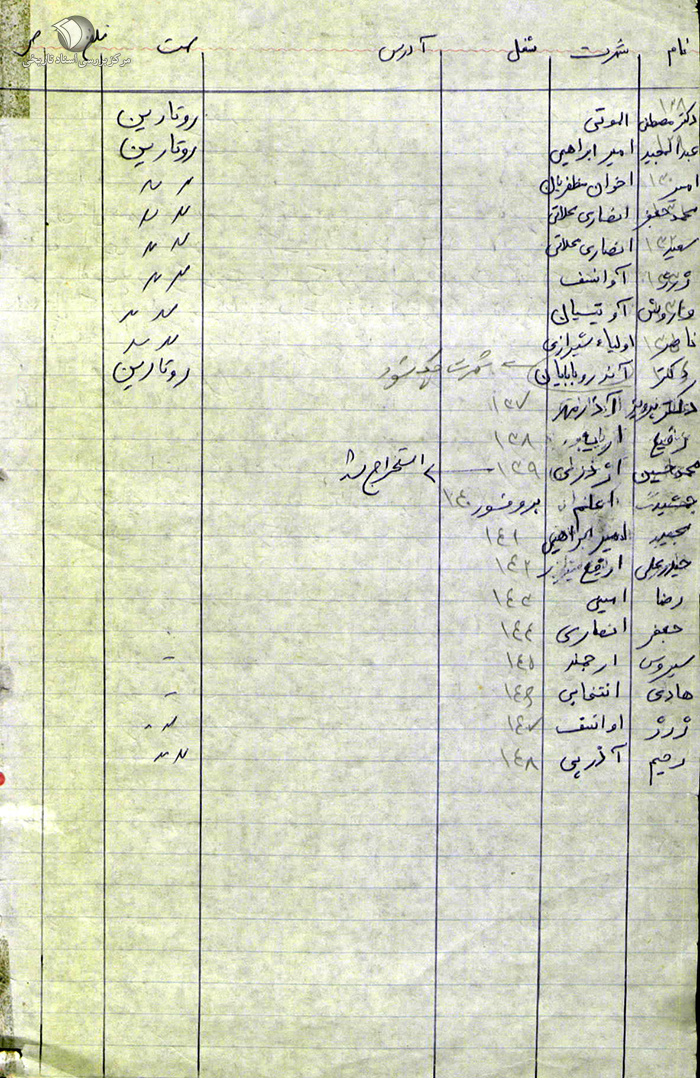 نام شهرت شغل آدرس سمت
مرکز بررسی اسناد تاریخی
دکتر مصطفی الموتی روتارین
عبدالمجید امیر ابراهیمی روتارین
امیر اخوان مظفریان 〃 〃
محمد جعفر انصاری محلاتی 〃 〃
سعید انصاری محلاتی 〃 〃
ژرژ آوانسف 〃 〃
آوتیسیان 〃 〃
ناصر اولیاء شیرازی 〃 〃
دکتر آندروبابایان شهرت چک شود روتارین
دکتر پرویز آذرمهر ۱۳۷
رفیع ۱۳۸
محمد حسین ۱۳۹ استخراج شد
جمشید اعلم پروفسور ۱۴۰
مجید امیر ابراهیمی ۱۴۱
حیدرعلی ارفع ۱۴۲
رضا امینی ۱۴۳
جعفر انصاری ۱۴۴
سیروس ارجمند ۱۴۵
هادی انتخابی ۱۴۶
ژرژ اوانسف ۱۴۷ 〃
رحیم آذر پی ۱۴۸ 〃 〃